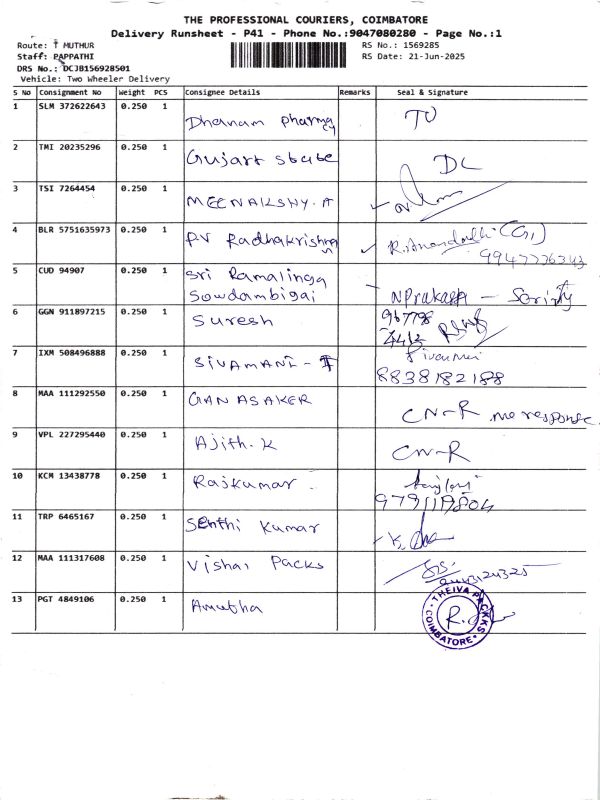 THE PROFESSIONAL COURIERS, COIMBATORE
Delivery Runsheet - P41 - Phone No.:9047080280 - Page No.:1
Route: T MUTHUR
Staff: PAPPATHI
DRS No.: DCJB156928501
Vehicle: Two Wheeler Delivery
RS No.: 1569285
RS Date: 21-Jun-2025
S No Consignment No Weight PCS Consignee Details Remarks Seal & Signature
1 SLM 372622643 0.250 1 Dhanam pharmacy TO
2 TMI 20235296 0.250 1 Gujart state DC
3 TSI 7264454 0.250 1 MEENAKSHY.A
4 BLR 5751635973 0.250 1 P.V Radhakrishnan R.Anandadhi (G1)
9947776343
5 CUD 94907 0.250 1 Sri Ramalinga
Sowdambigai NPrakash -
6 GGN 911897215 0.250 1 Suresh 967798
7 IXM 508496888 0.250 1 SIVAMANI - Sivamani
8838182188
8 MAA 111292550 0.250 1 GANASAKER CN-R no response
9 VPL 227295440 0.250 1 Ajith.K CN-R
10 KCM 13438778 0.250 1 Rajkumar
11 TRP 6465167 0.250 1 Senthi Kumar
12 MAA 111317608 0.250 1 Vishai Packs
13 PGT 4849106 0.250 1 Amutha
THEIVA PACKKS
COIMBATORE